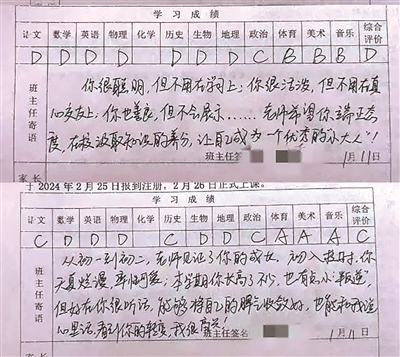 学习成绩
语文 数学 英语 物理 化学 历史 生物 地理 政治 体育 美术 音乐 综合评价
D D D D D D D C B B B D
班主任寄语
你很聪明，但不用在学习上；你很活泼，但不用在真
心交友上，你也善良，但不会展示……老师希望你端正态
度，在校汲取知识的养分，让自己成为一个优秀的"小大人"！
班主任签名 1月11日
家长
于 2024 年 2 月 25 日报到注册，2 月 26 日正式上课。
学习成绩
语文 数学 英语 物理 化学 历史 生物 地理 政治 体育 美术 音乐 综合评价
C D D D C D D C A A A C
班主任寄语
从初一到初二，老师见证了你的成长，初入校时，你
天真烂漫，率性可爱；本学期你长高了不少，也有点小"叛逆"，
但好在你很听话，能够将自己的脾气收敛好，也能和我说
心里话，看到你的转变，我很高兴。
班主任签名 1月11日